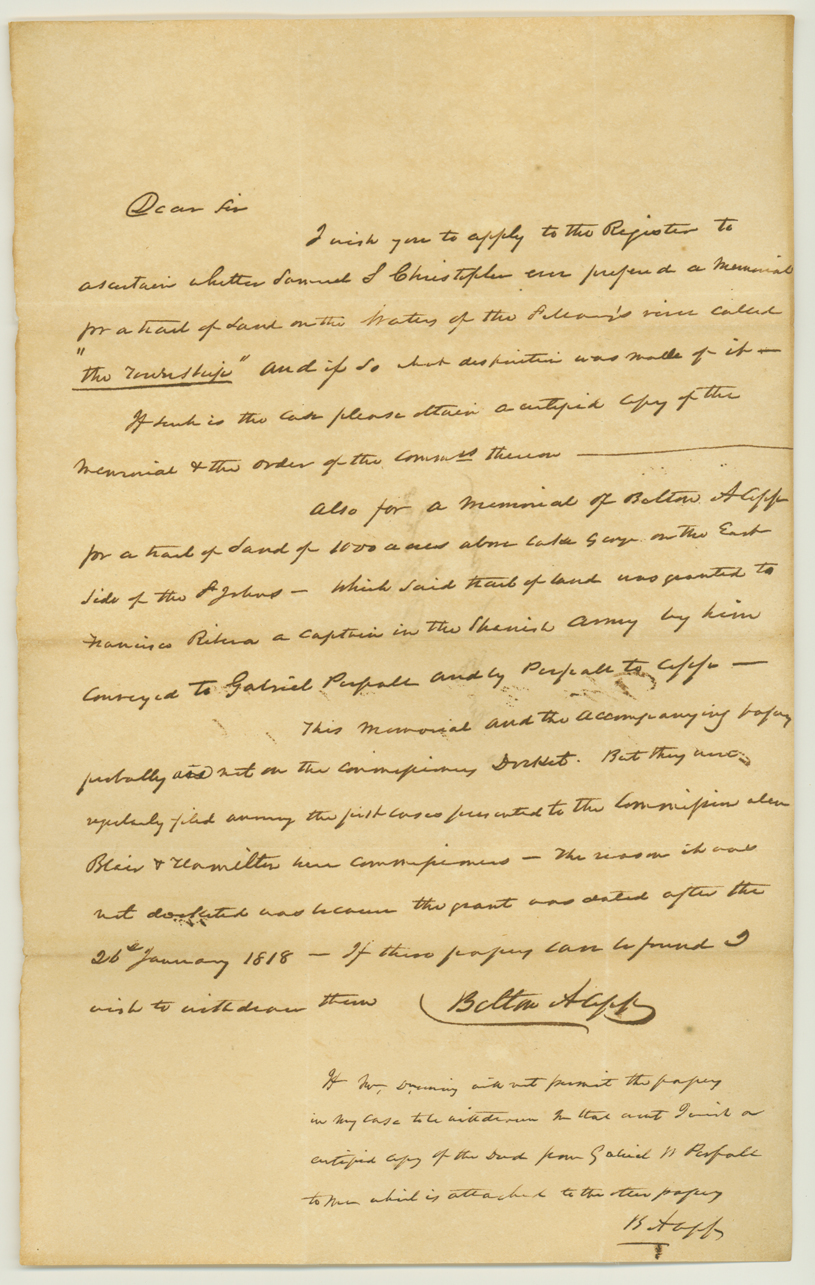 Dear Sir
I wish you to apply to the Register to
ascertain whether Samuel S Christopher ever prefered a Memorial
for a tract of Land on the Waters of the river called
"the Township" and if so what disposition was made of it —
If such is the case please obtain a certified copy of the
Memorial & the order of the Commrs thereon —
Also for a Memorial of Belton A Copp
for a tract of Land of 1000 acres above Lake George on the East
side of the St Johns — Which said tract of land was granted to
Francisco Ribera a Captain in the Spanish Army by him
Conveyed to Gabriel Perpall and by Perpall to Copp —
This Memorial and the accompanying papers
probably are not on the commissioners Docket. But they were
regularly filed among the first cases presented to the Commission when
Blair & Hamilton were commissioners — The reason it was
not docketed was because the grant was dated after the
26th January 1818 — If these papers can be found I
wish to withdraw them Belton A Copp
If Mr. Downing will not permit the papers
in my case to be withdrawn In that event I wish a
certified copy of the Deed from Gabriel W Perpall
to me which is attached to the other papers
B A Copp